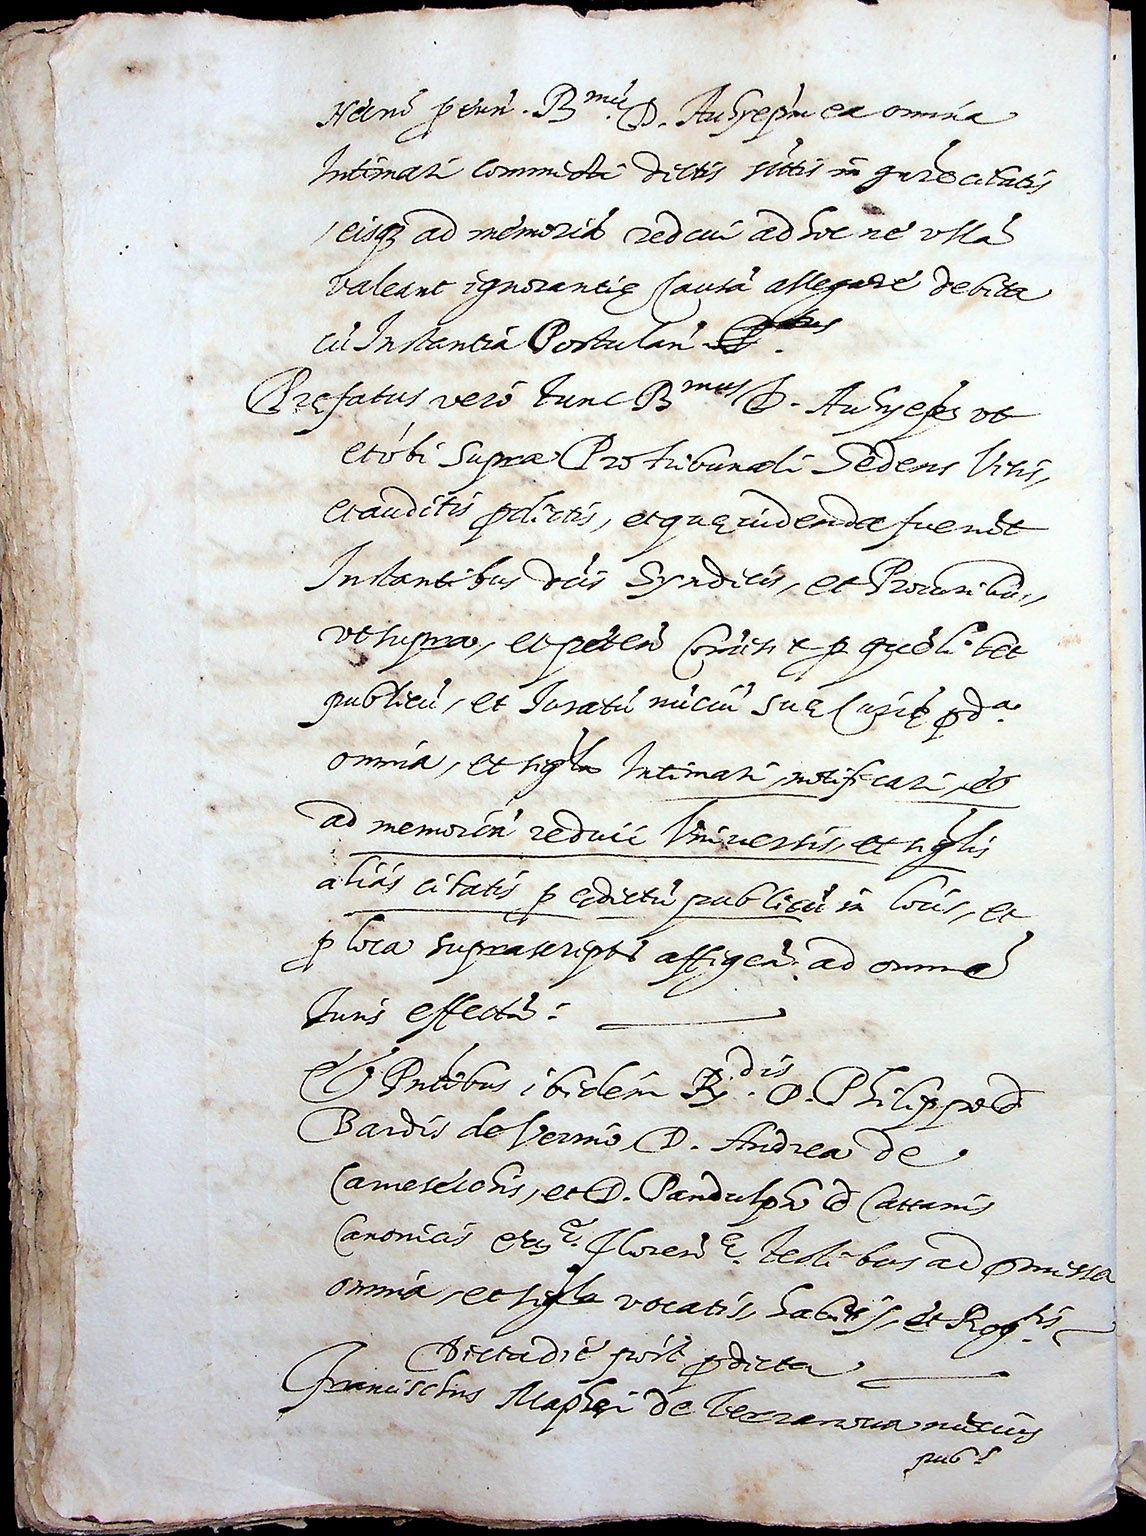 p R.mū D. Archiepūm ea omnia
Intimari commicti dictis sūttis in gñre citatis
eisq3 ad memoriā reduci ad hoc ne vllā
valeant ignorantię causā allegare debita
cū Instantia Postulan.
Pręfatus vero tunc R.mus D. Archyeṗs vt
et vbi supra Pro tribunali sedens Visis,
et auditis pdictis, et quę uidenda fuerūt
Instantibus dc̄is Syndicis, et Procurībus,
vt supra, et peten comisit p quēlibet
publicū, et Juratū nūciū suę Curię pd.a
omnia, et sigl̄a Intimari, notificari, et
ad memoriā reduci Vniuersis, et sigl̄is
alias citatis p edictū publicū in locis, et
p loca suprascripta affigen ad omnē
Juris effectū:
Pn̄tibus ibidem R.dis D. Philippo d
Bardis de Vernio, D. Andrea de
et D. Pandulpho d Cattanis
Canonicis Floren.e testibus ad pmissa
omnia, et sigl̄a vocatis, habitis, et Rog.tis
Dicta die post pdicta
Francischus Maphei de Terranoua nūcius
pub.s